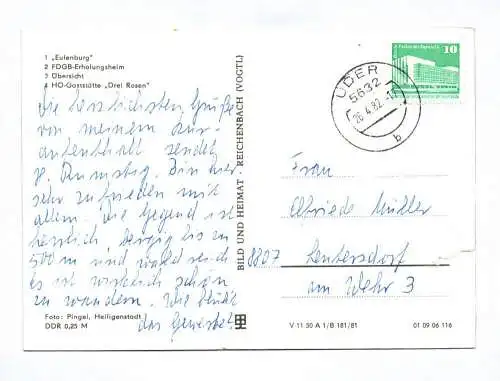 1 „Eulenburg"
2 FDGB-Erholungsheim
3 Übersicht
4 HO-Gaststätte „Drei Rosen"
Die herzlichsten Grüße
von meinem Kur-
aufenthalt sendet
Bin hier
sehr zufrieden mit
allem. Die Gegend ist
herrlich, bergig bis zu
500 m und waldreich
es ist wirklich schön
zu wandern. Wie blüht
das Gewerbe?
Foto: Pingel, Heiligenstadt
DDR 0,25 M
BILD UND HEIMAT · REICHENBACH (VOGTL)
V 11 50 A 1/B 181/81
01 09 06 116
UDER
5632
26.4.82
b
10
Frau
Elfriede Müller
8807 Leutersdorf
am Wehr 3